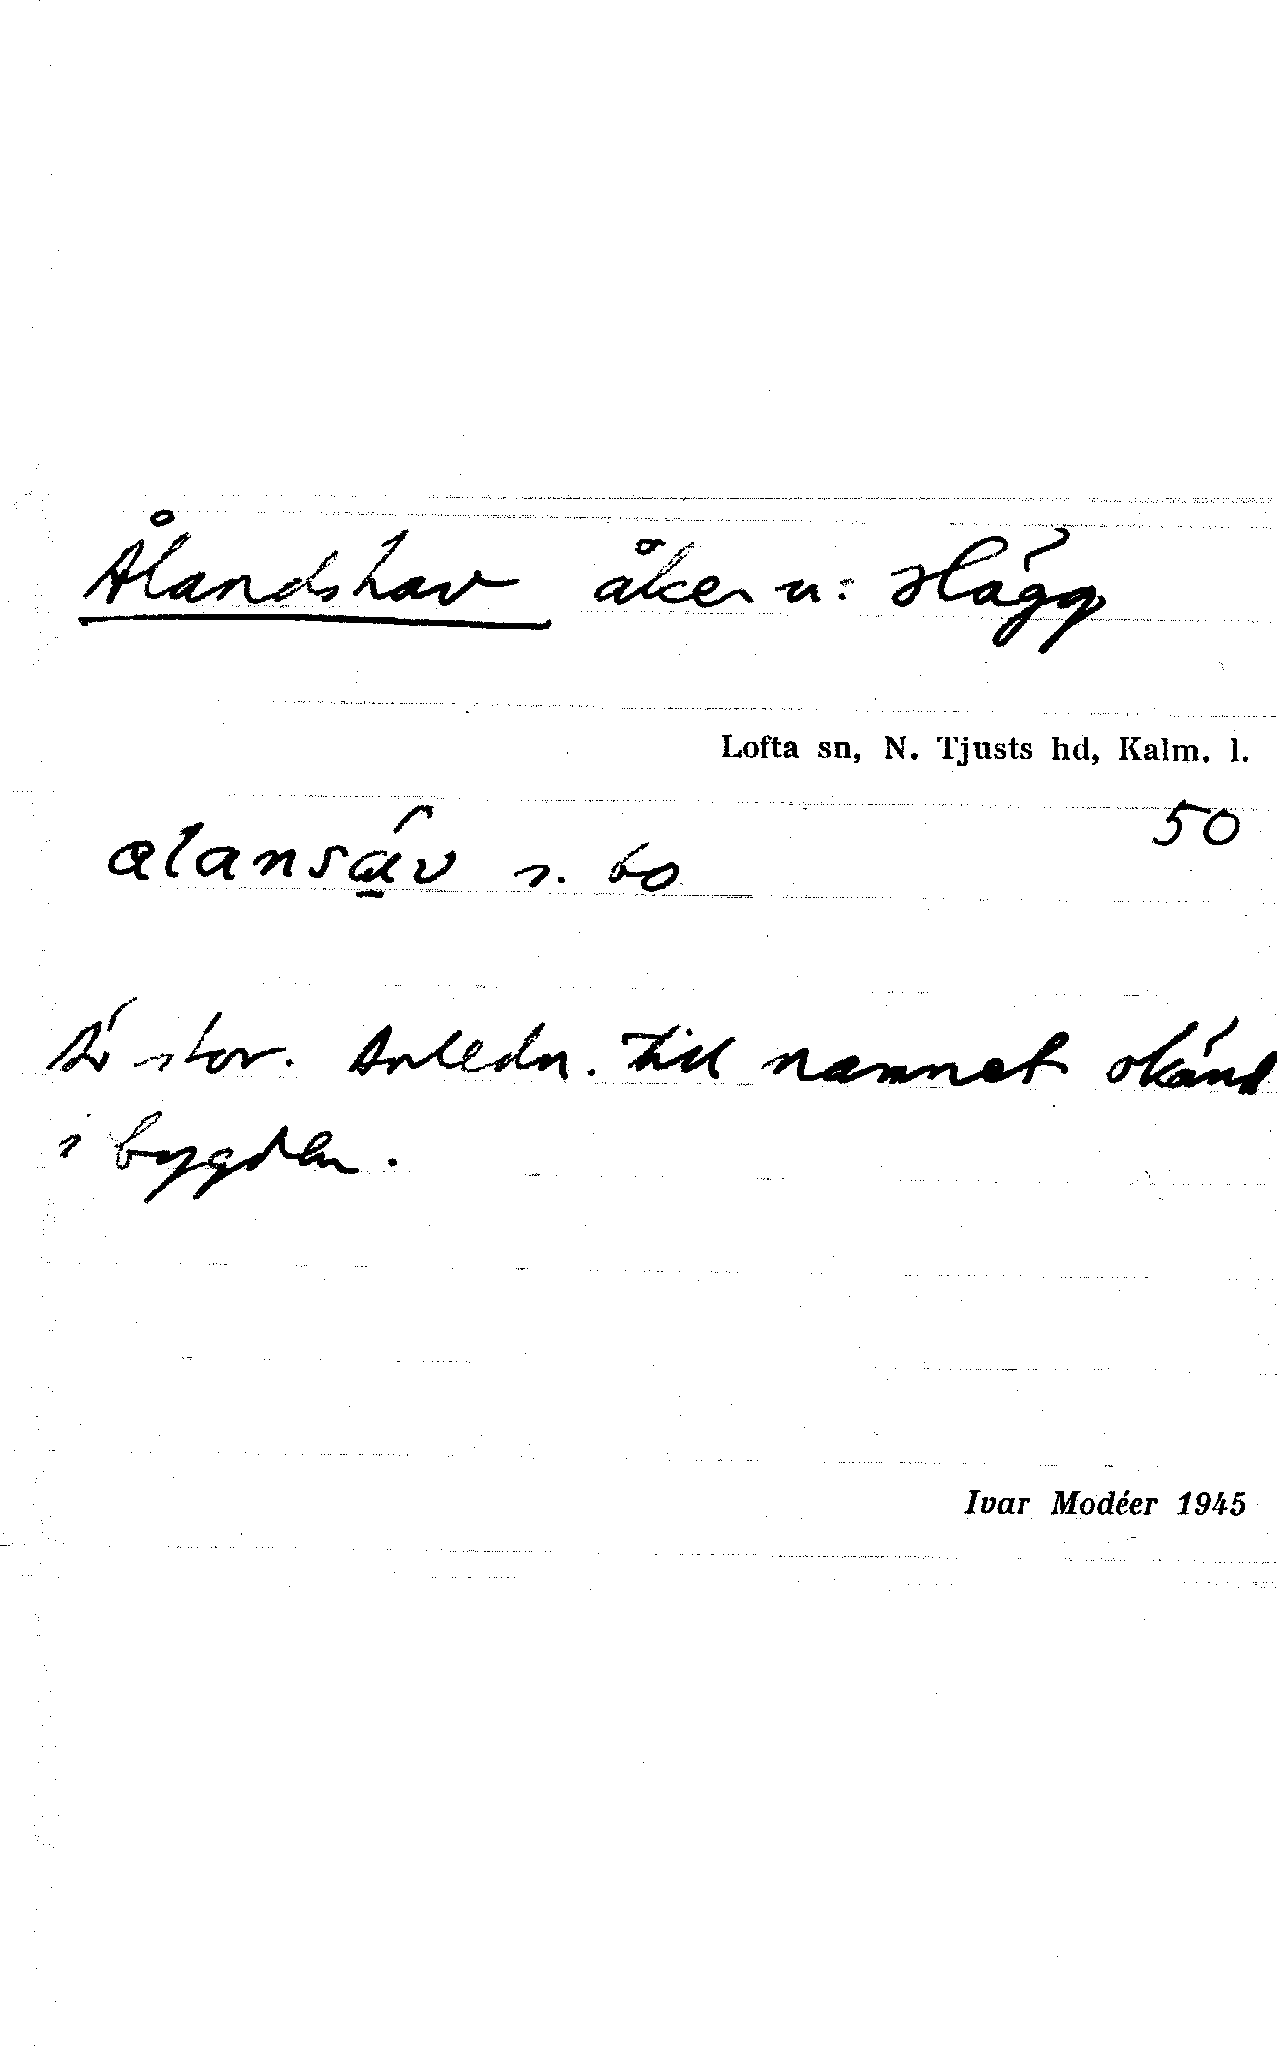 Ålandshav åker u: Slägg
Lofta sn, N. Tjusts hd, Kalm. l.
50
ɑlansáv s. bo
Är stor. Anledn. till namnet okänd
i bygden.
Ivar Modéer 1945